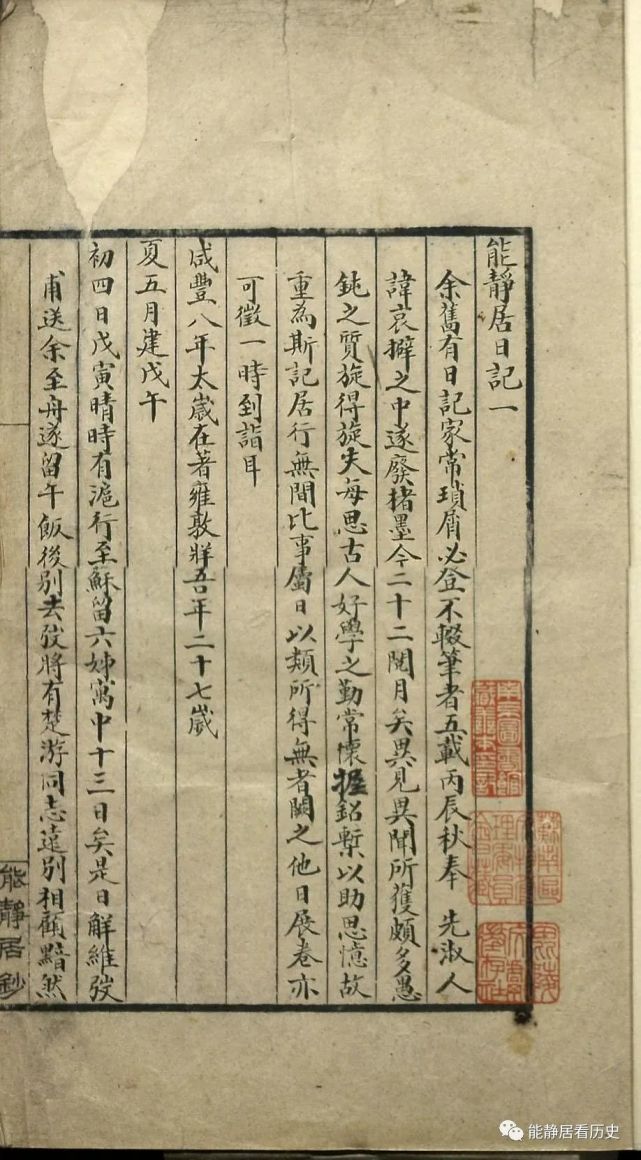 能靜居日記一
余舊有日記家常瑣屑必登不輟筆者五載丙辰秋奉　先淑人
諱哀擗之中遂廢楮墨今二十二閱月矣異見異聞所獲頗多愚
鈍之質旋得旋失每思古人好學之勤常懷握鉛槧以助思憶故
重為斯記居行無間比事屬日以類所得無者闕之他日展卷亦
可徵一時到詣耳
咸豐八年太歲在著雍敦牂吾年二十七歲
夏五月建戊午
初四日戊寅晴時有滬行至蘇留六姊寓中十三日矣是日解維弢
甫送余至舟遂留午飯後別去弢將有楚游同志遠別相顧黯然
能靜居鈔
能静居看历史